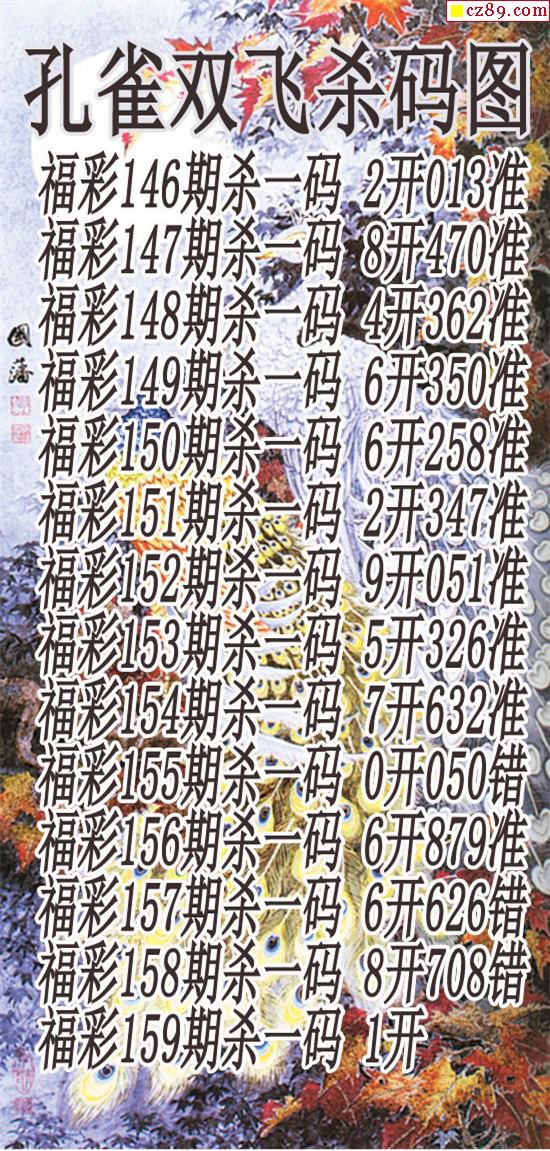 cz89.com
孔雀双飞杀码图
福彩146期杀一码 2开013准
福彩147期杀一码 8开470准
福彩148期杀一码 4开362准
福彩149期杀一码 6开350准
福彩150期杀一码 6开258准
福彩151期杀一码 2开347准
福彩152期杀一码 9开051准
福彩153期杀一码 5开326准
福彩154期杀一码 7开632准
福彩155期杀一码 0开050错
福彩156期杀一码 6开879准
福彩157期杀一码 6开626错
福彩158期杀一码 8开708错
福彩159期杀一码 1开
國藩